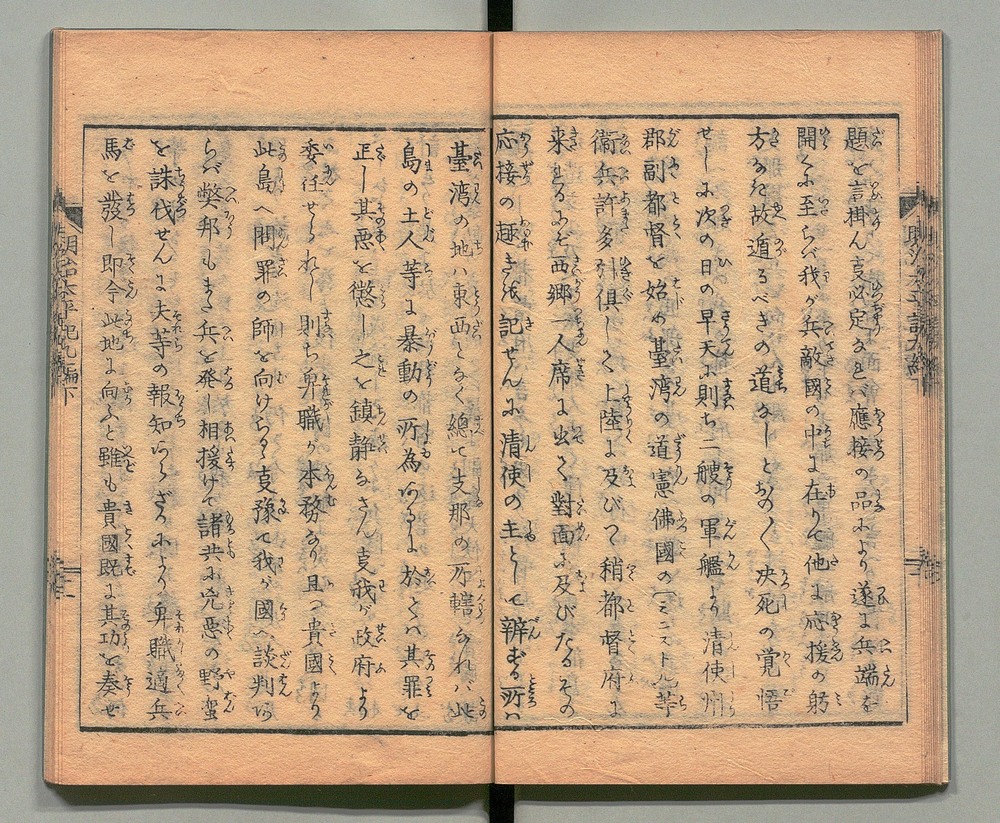 題を言掛ん支必定なれバ應接の品により遂に兵端を
開くに至らバ我が兵敵國の中に在りて他に応援の躬
方なき故遁るべきの道なしとおの〳〵决死の覚悟
せしに次の日の早天に則ち二艘の軍艦より清使州
郡副都督を始め臺湾の道憲佛國の(ミニストル)等
衞兵許多引俱して上陸に及びつゝ稍都督府に
来れるにぞ西郷一人席に出て對面に及びたるその
応接の趣きを記せんに清使の主として辧ずる所ハ
臺湾の地ハ東西となく總て支那の所轄なれバ此
島の土人等に暴動の所為あるに於てハ其罪を
正し其悪を懲し之を鎮静なさん支我が政府より
委任せられし則ち卑職が本務なり且つ貴國より
此島へ問罪の師を向けらるゝ支豫て我が國へ談判あ
らバ弊邦もまた兵を発し相援けて諸共に兇悪の野蛮
を誅伐せんに夫等の報知あらざるにより卑職適兵
馬を發し即今此地に向ふと雖も貴國既に其功を奏せ
明治太平記九編下